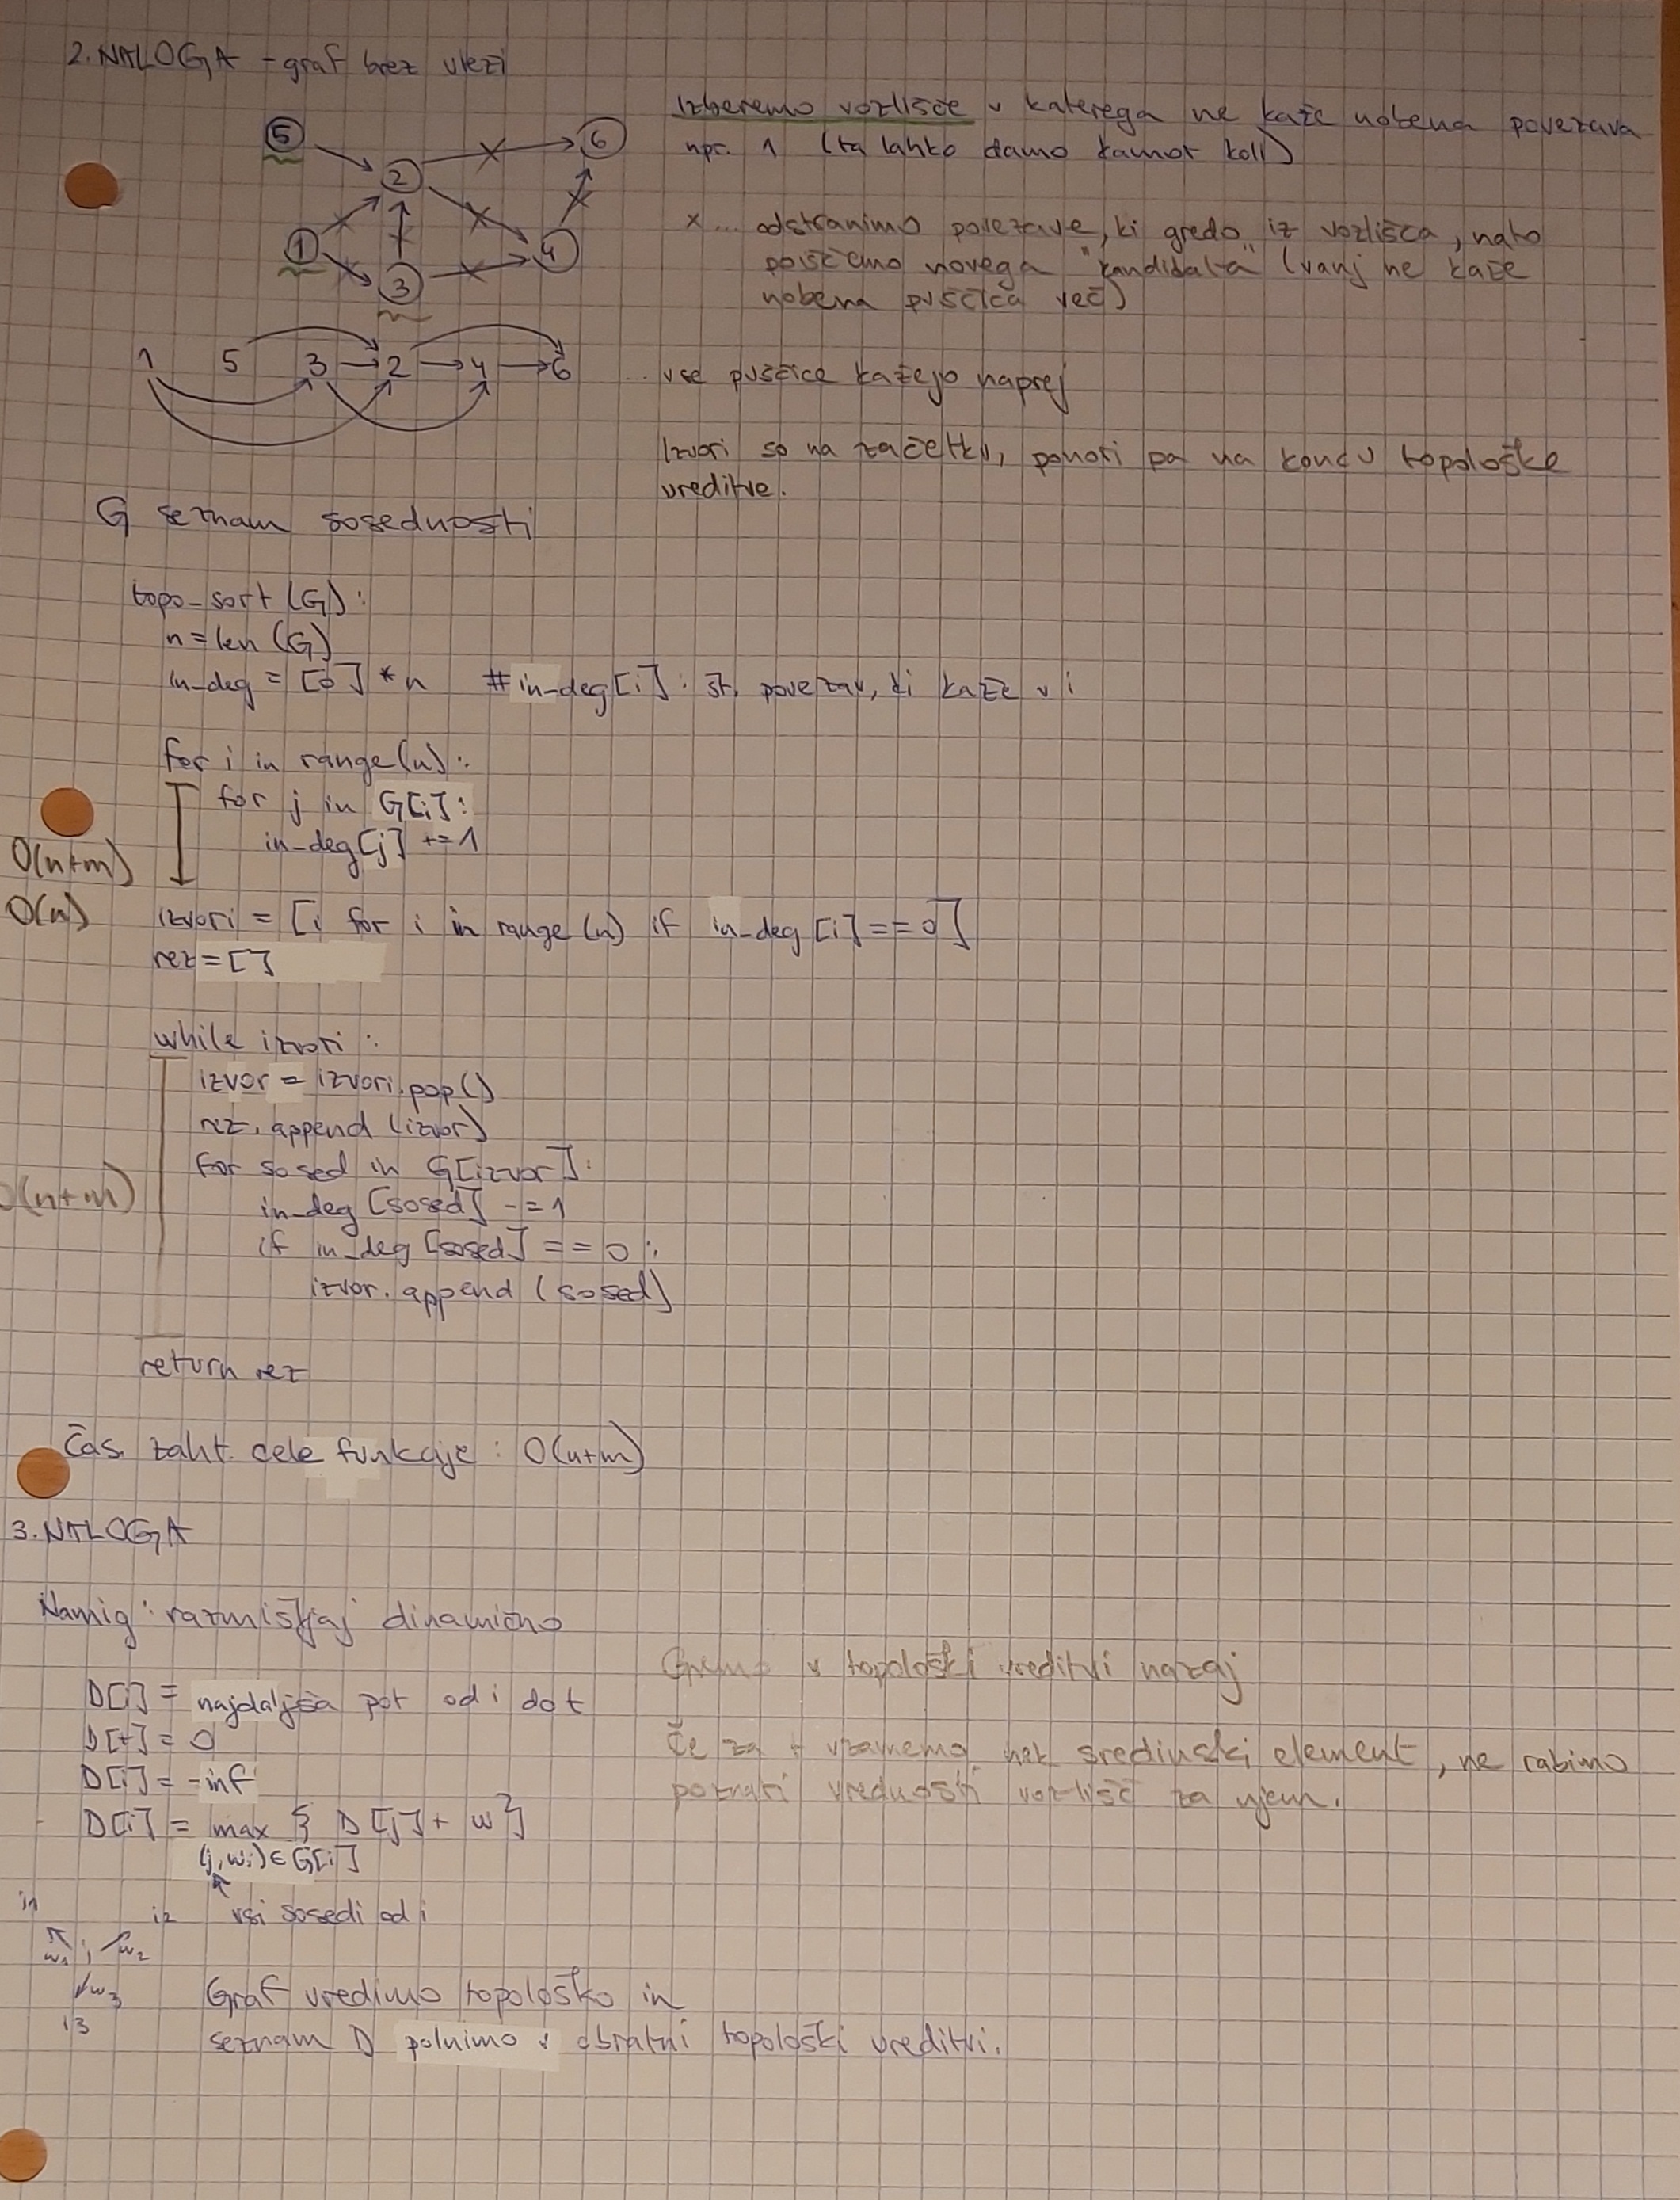 2. NALOGA - graf brez utezi
5
2
6
1
3
4
Izberemo vozlišče v katerega ne kaže nobena povezava
npr. 1 (ta lahko damo kamor koli)
x... odstranimo povezave, ki gredo iz vozlišča, nato
poiščemo novega "kandidata" (vanj ne kaže
nobena puščica več)
1 5 3 2 4 6
... vse puščice kažejo naprej
Izvori so na začetku, ponori pa na koncu topološke
ureditve.
G seznam sosednosti
topo_sort(G):
n = len(G)
in_deg = [0] * n # in_deg[i]: št. povezav, ki kaže v i
for i in range(n):
for j in G[i]:
in_deg[j] += 1
O(n+m)
O(n) izvori = [i for i in range(n) if in_deg[i] == 0]
rez = []
while izvori:
izvor = izvori.pop()
rez.append(izvor)
for sosed in G[izvor]:
O(n+m)
in_deg[sosed] -= 1
if in_deg[sosed] == 0:
izvor.append(sosed)
return rez
Čas. zaht. cele funkcije: O(n+m)
3. NALOGA
Namig: razmišljaj dinamično
D[i] = najdaljša pot od i do t
D[t] = 0
D[i] = -inf
D[i] = max { D[j] + w }
(j, wi) ∈ G[i]
vsi sosedi od i
Gremo v topološki ureditvi nazaj
Če za t vzamemo nek sredinski element, ne rabimo
pognati vrednosti vozlišč za njem.
i1
i2
w1 i w2
w3
i3
Graf uredimo topološko in
seznam D polnimo v obratni topološki ureditvi.